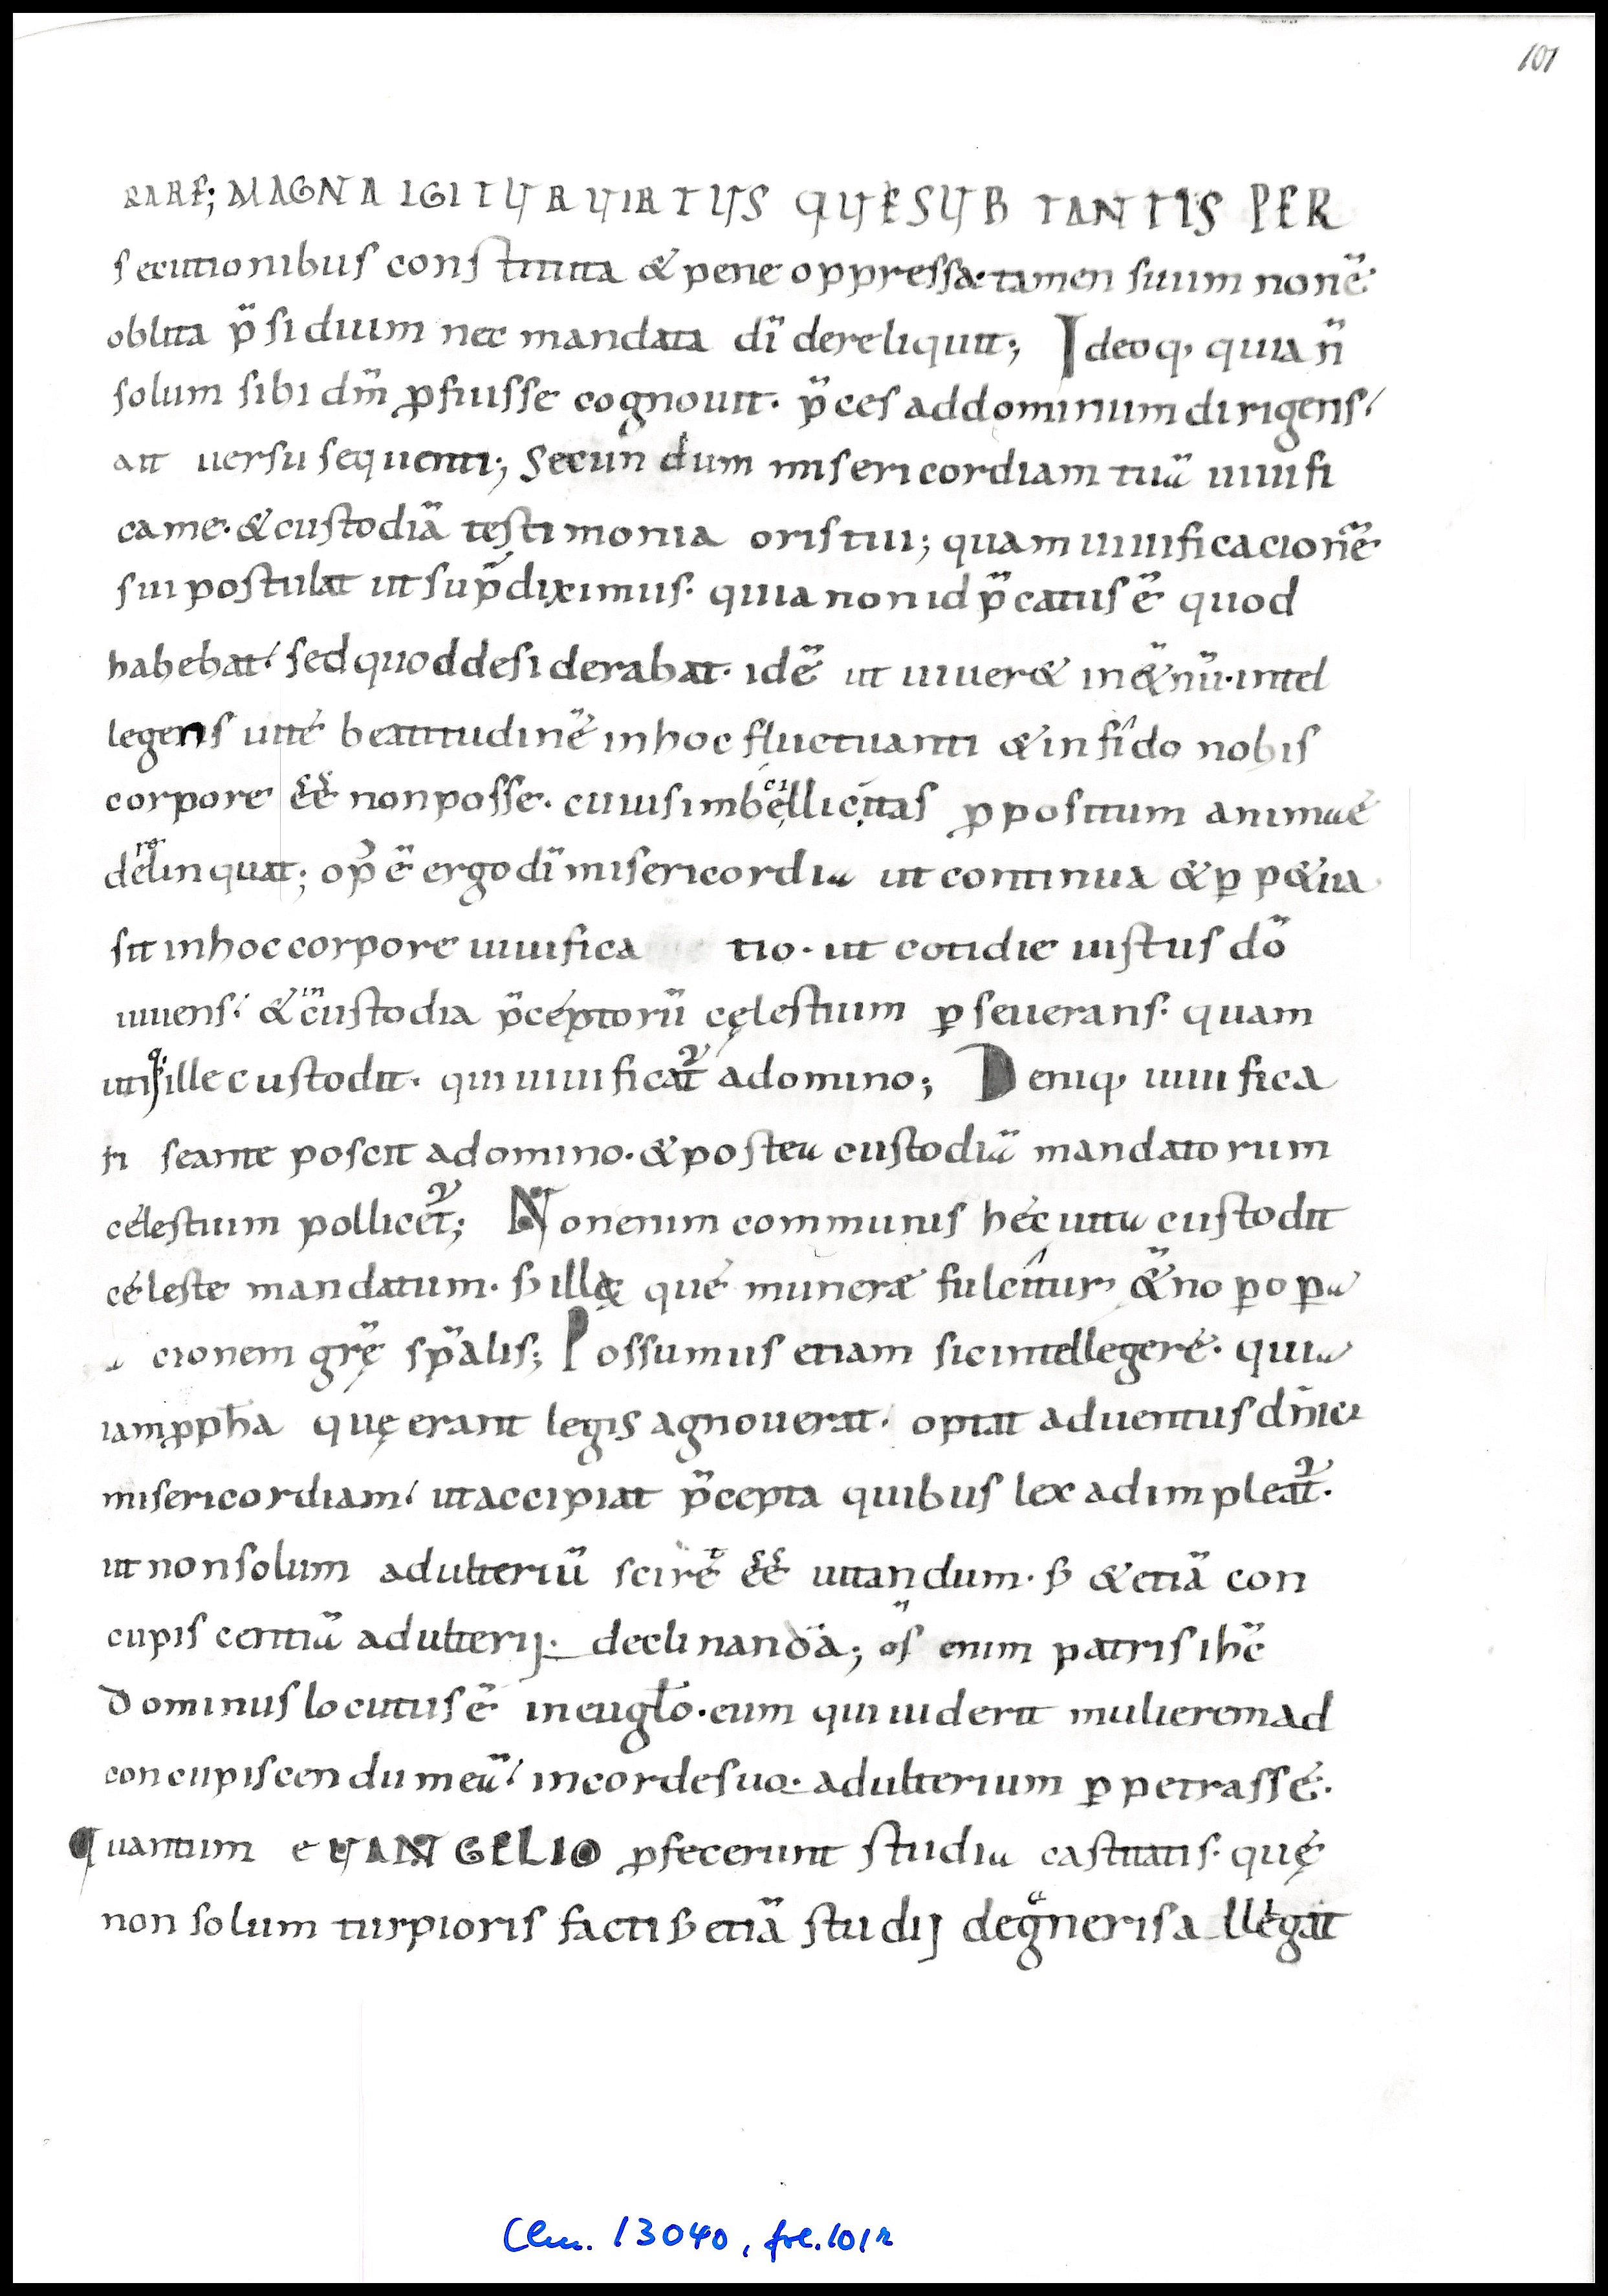 101
RARE; MAGNA IGITUR UIRTUS QUE SUB TANTIS PER
secutionibus constituta & pene oppressa. tamen suum non ē
oblita p̄sidium nec mandata dī dereliquit; Ideoq, quia n̄
solum sibi dm̄ ꝓfuisse cognouit. p̄ces ad dominum dirigens.
ait uersu sequenti; Secundum misericordiam tuā uiuifi
ca me. & custodiā testimonia oris tui; quam uiuificacionē
sui postulat ut sup̄ diximus. quia non id p̄catus ē quod
habebat. sed quod desiderabat. id ē ut uiuer& in &̄nū. intel
legens uitę beatitudinē in hoc fluctuanti & infido nobis
corpore ēē non posse. cuius imbecillicitas ꝓpositum animę
derelinquat; op̄ ē ergo dī misericordia ut continua & ꝑp&ua
sit in hoc corpore uiuifica tio. ut cotidie iustus dō
uiuens. & in custodia p̄ceptorū cęlestium ꝑseuerans. quam
utiq; ille custodit. qui uiuificat᷑ a domino; Deniq, uiuifica
ri se ante poscit a domino. & postea custodiā mandatorum
cęlestium pollicet᷑; Non enim communis hęc uita custodit
cęleste mandatum. s; illa quę munere fulcitur, &̄no ꝑ oꝑa
cionem grę̄ sp̄alis; Possumus etiam sic intellegere. quia
iam ꝓph̄a quę erant legis agnouerat. optat aduentus dn̄ici
misericordiam. ut accipiat p̄cepta quibus lex adimpleat᷑.
ut non solum adulteriū sciret ēē uitandum. s; & etiā con
cupiscentiā adulterij. declinandā; os enim patris ihc̄
dominus locutus ē in euglo. eum qui uiderit mulierem ad
concupiscendum eā. in corde suo. adulterium ꝑpetrasse.
Quantum eUANGELIO ꝓfecerunt studia castitatis. quę
non solum turpioris facti s; etiā studij degeneris allegat
Clm. 13040, fol. 101r